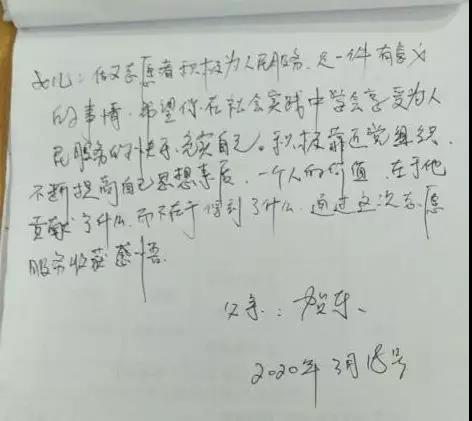 女儿：做好志愿者积极为人民服务，是一件有意义
的事情，希望你在社会实践中学会享受为人
民服务的快乐，充实自己。积极靠近党组织，
不断提高自己思想素质，一个人的价值，在于他
贡献了什么，而不在于得到了什么，通过这次志愿
服务收获感悟。
父亲：贺东、
2020年3月18号